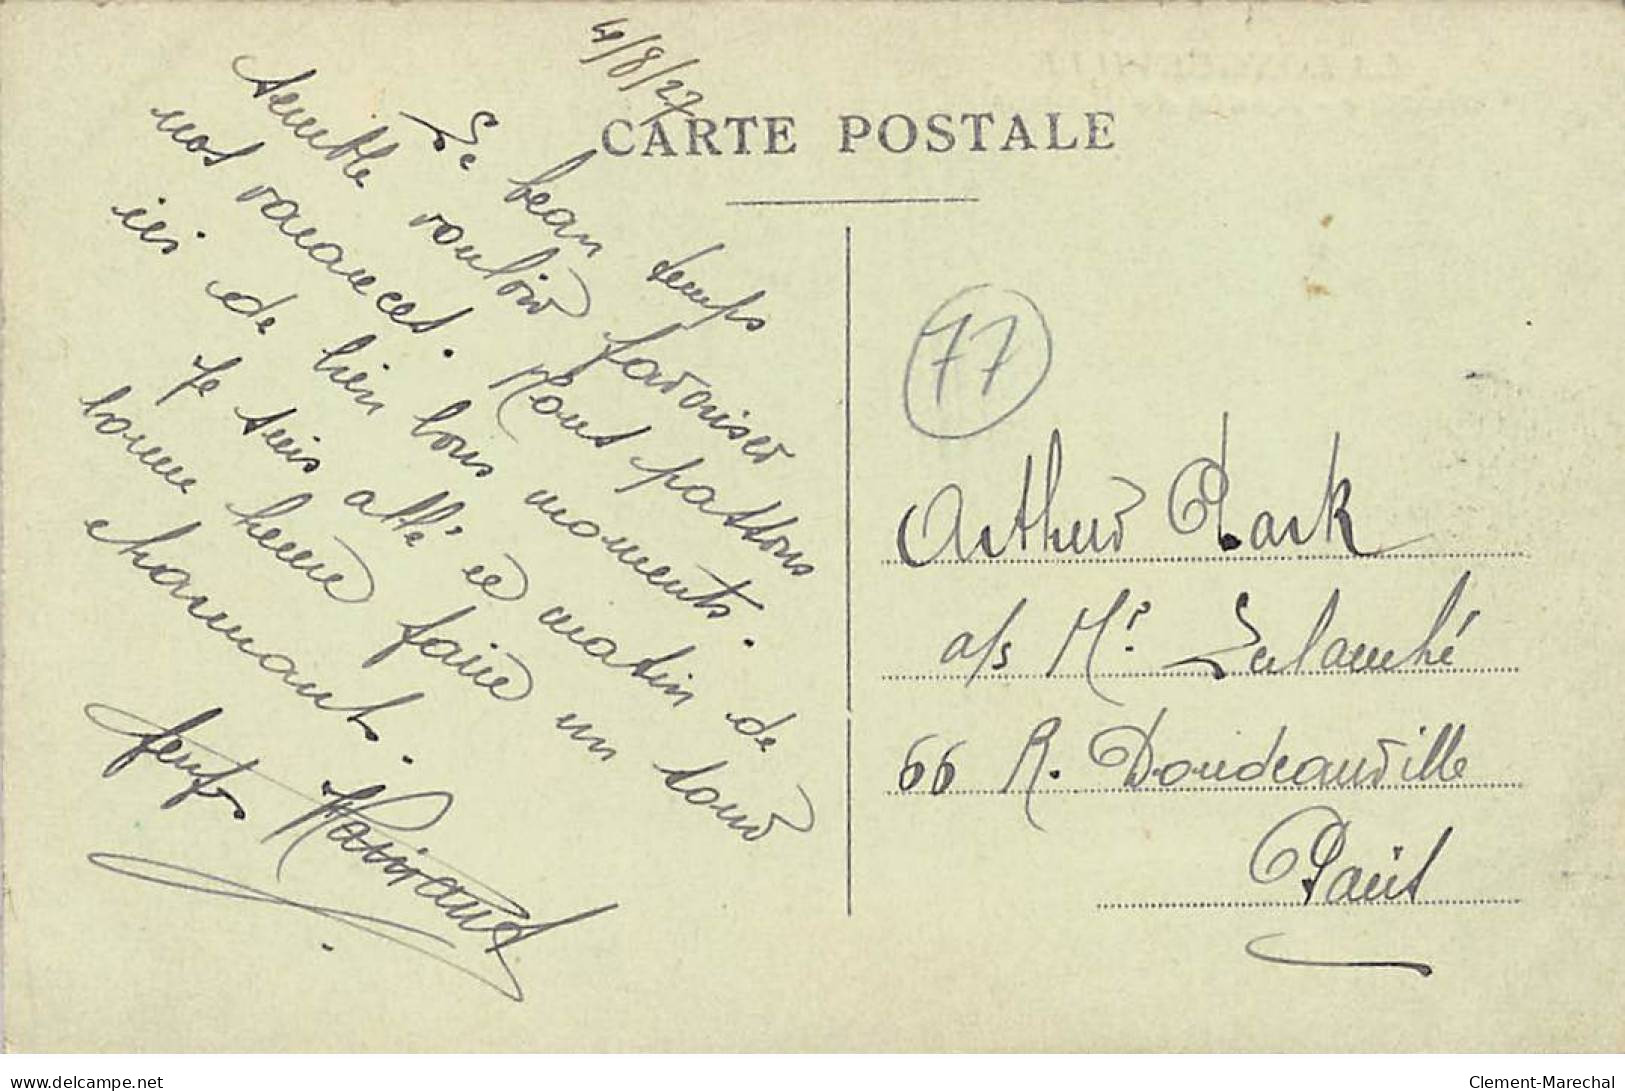 4/8/27
CARTE POSTALE
Le beau temps
semble vouloir favoriser
nos vacances. Nous passons
ici de bien bons moments.
Je suis allé ce matin de
bonne heure faire un tour
charmant.
77
Arthur
a/s Mr.
66 R. Doudeauville
Paris
www.delcampe.net
Clement-Marechal